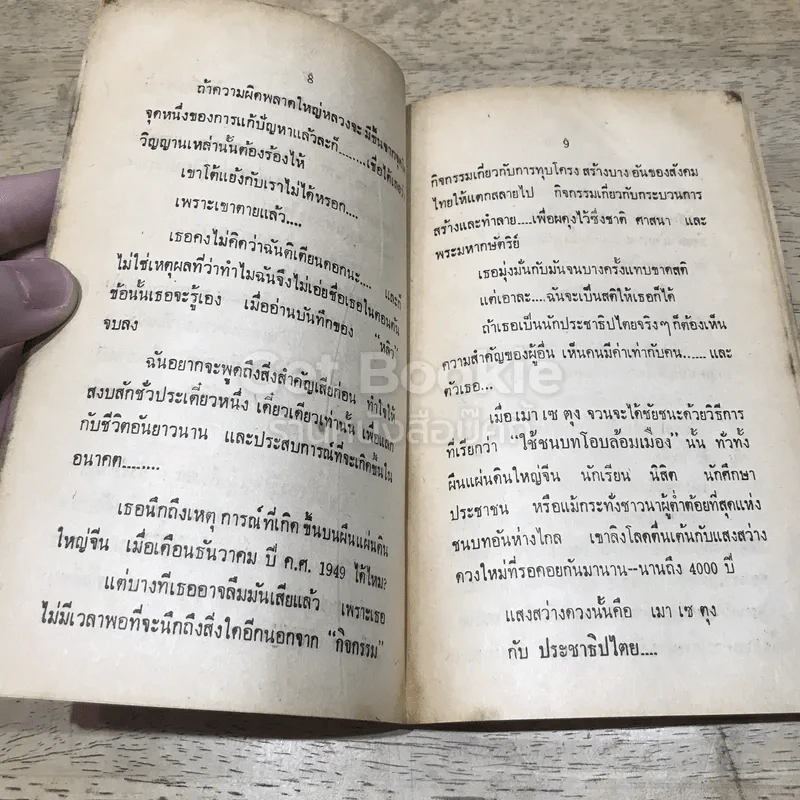 8
ถ้าความผิดพลาดใหญ่หลวงจะมีขึ้นจาก
จุดหนึ่งของการแก้ปัญหาแล้วละก็........เชื่อได้เลยว่า
วิญญานเหล่านั้นต้องร้องไห้
เขาโต้แย้งกับเราไม่ได้หรอก....
เพราะเขาตายแล้ว....
เธอคงไม่คิดว่าฉันติเตียนดอกนะ.... และก็
ไม่ใช่เหตุผลที่ว่าทำไมฉันจึงไม่เอ่ยชื่อเธอในตอนต้น
ข้อนั้นเธอจะรู้เอง เมื่ออ่านบันทึกของ "หลิว"
จบลง
ฉันอยากจะพูดถึงสิ่งสำคัญเสียก่อน ทำใจให้
สงบสักชั่วประเดี๋ยวหนึ่ง เดี๋ยวเดียวเท่านั้น เพื่อแลก
กับชีวิตอันยาวนาน และประสบการณ์ที่จะเกิดขึ้นใน
อนาคต........
เธอนึกถึงเหตุการณ์ที่เกิดขึ้นบนผืนแผ่นดิน
ใหญ่จีน เมื่อเดือนธันวาคม ปี ค.ศ. 1949 ได้ไหม?
แต่บางทีเธออาจลืมมันเสียแล้ว เพราะเธอ
ไม่มีเวลาพอที่จะนึกถึงสิ่งใดอีกนอกจาก "กิจกรรม"
9
กิจกรรมเกี่ยวกับการทุบโครงสร้างบางอันของสังคม
ไทยให้แตกสลายไป กิจกรรมเกี่ยวกับกระบวนการ
สร้างและทำลาย....เพื่อผดุงไว้ซึ่งชาติ ศาสนา และ
พระมหากษัตริย์
เธอมุ่งมั่นกับมันจนบางครั้งแทบขาดสติ
แต่เอาละ....ฉันจะเป็นสติให้เธอก็ได้
ถ้าเธอเป็นนักประชาธิปไตยจริงๆ ก็ต้องเห็น
ความสำคัญของผู้อื่น เห็นคนมีค่าเท่ากับคน...... และ
ตัวเธอ...
เมื่อ เมา เซ ตุง จวนจะได้ชัยชนะด้วยวิธีการ
ที่เรียกว่า "ใช้ชนบทโอบล้อมเมือง" นั้น ทั่วทั้ง
ผืนแผ่นดินใหญ่จีน นักเรียน นิสิต นักศึกษา
ประชาชน หรือแม้กระทั่งชาวนาผู้ต่ำต้อยที่สุดแห่ง
ชนบทอันห่างไกล เขาลิงโลดตื่นเต้นกับแสงสว่าง
ดวงใหม่ที่รอคอยกันมานาน--นานถึง 4000 ปี
แสงสว่างดวงนั้นคือ เมา เซ ตุง
กับ ประชาธิปไตย....
Get Bookie
ร้านหนังสือเก็ตบุ๊คกี้